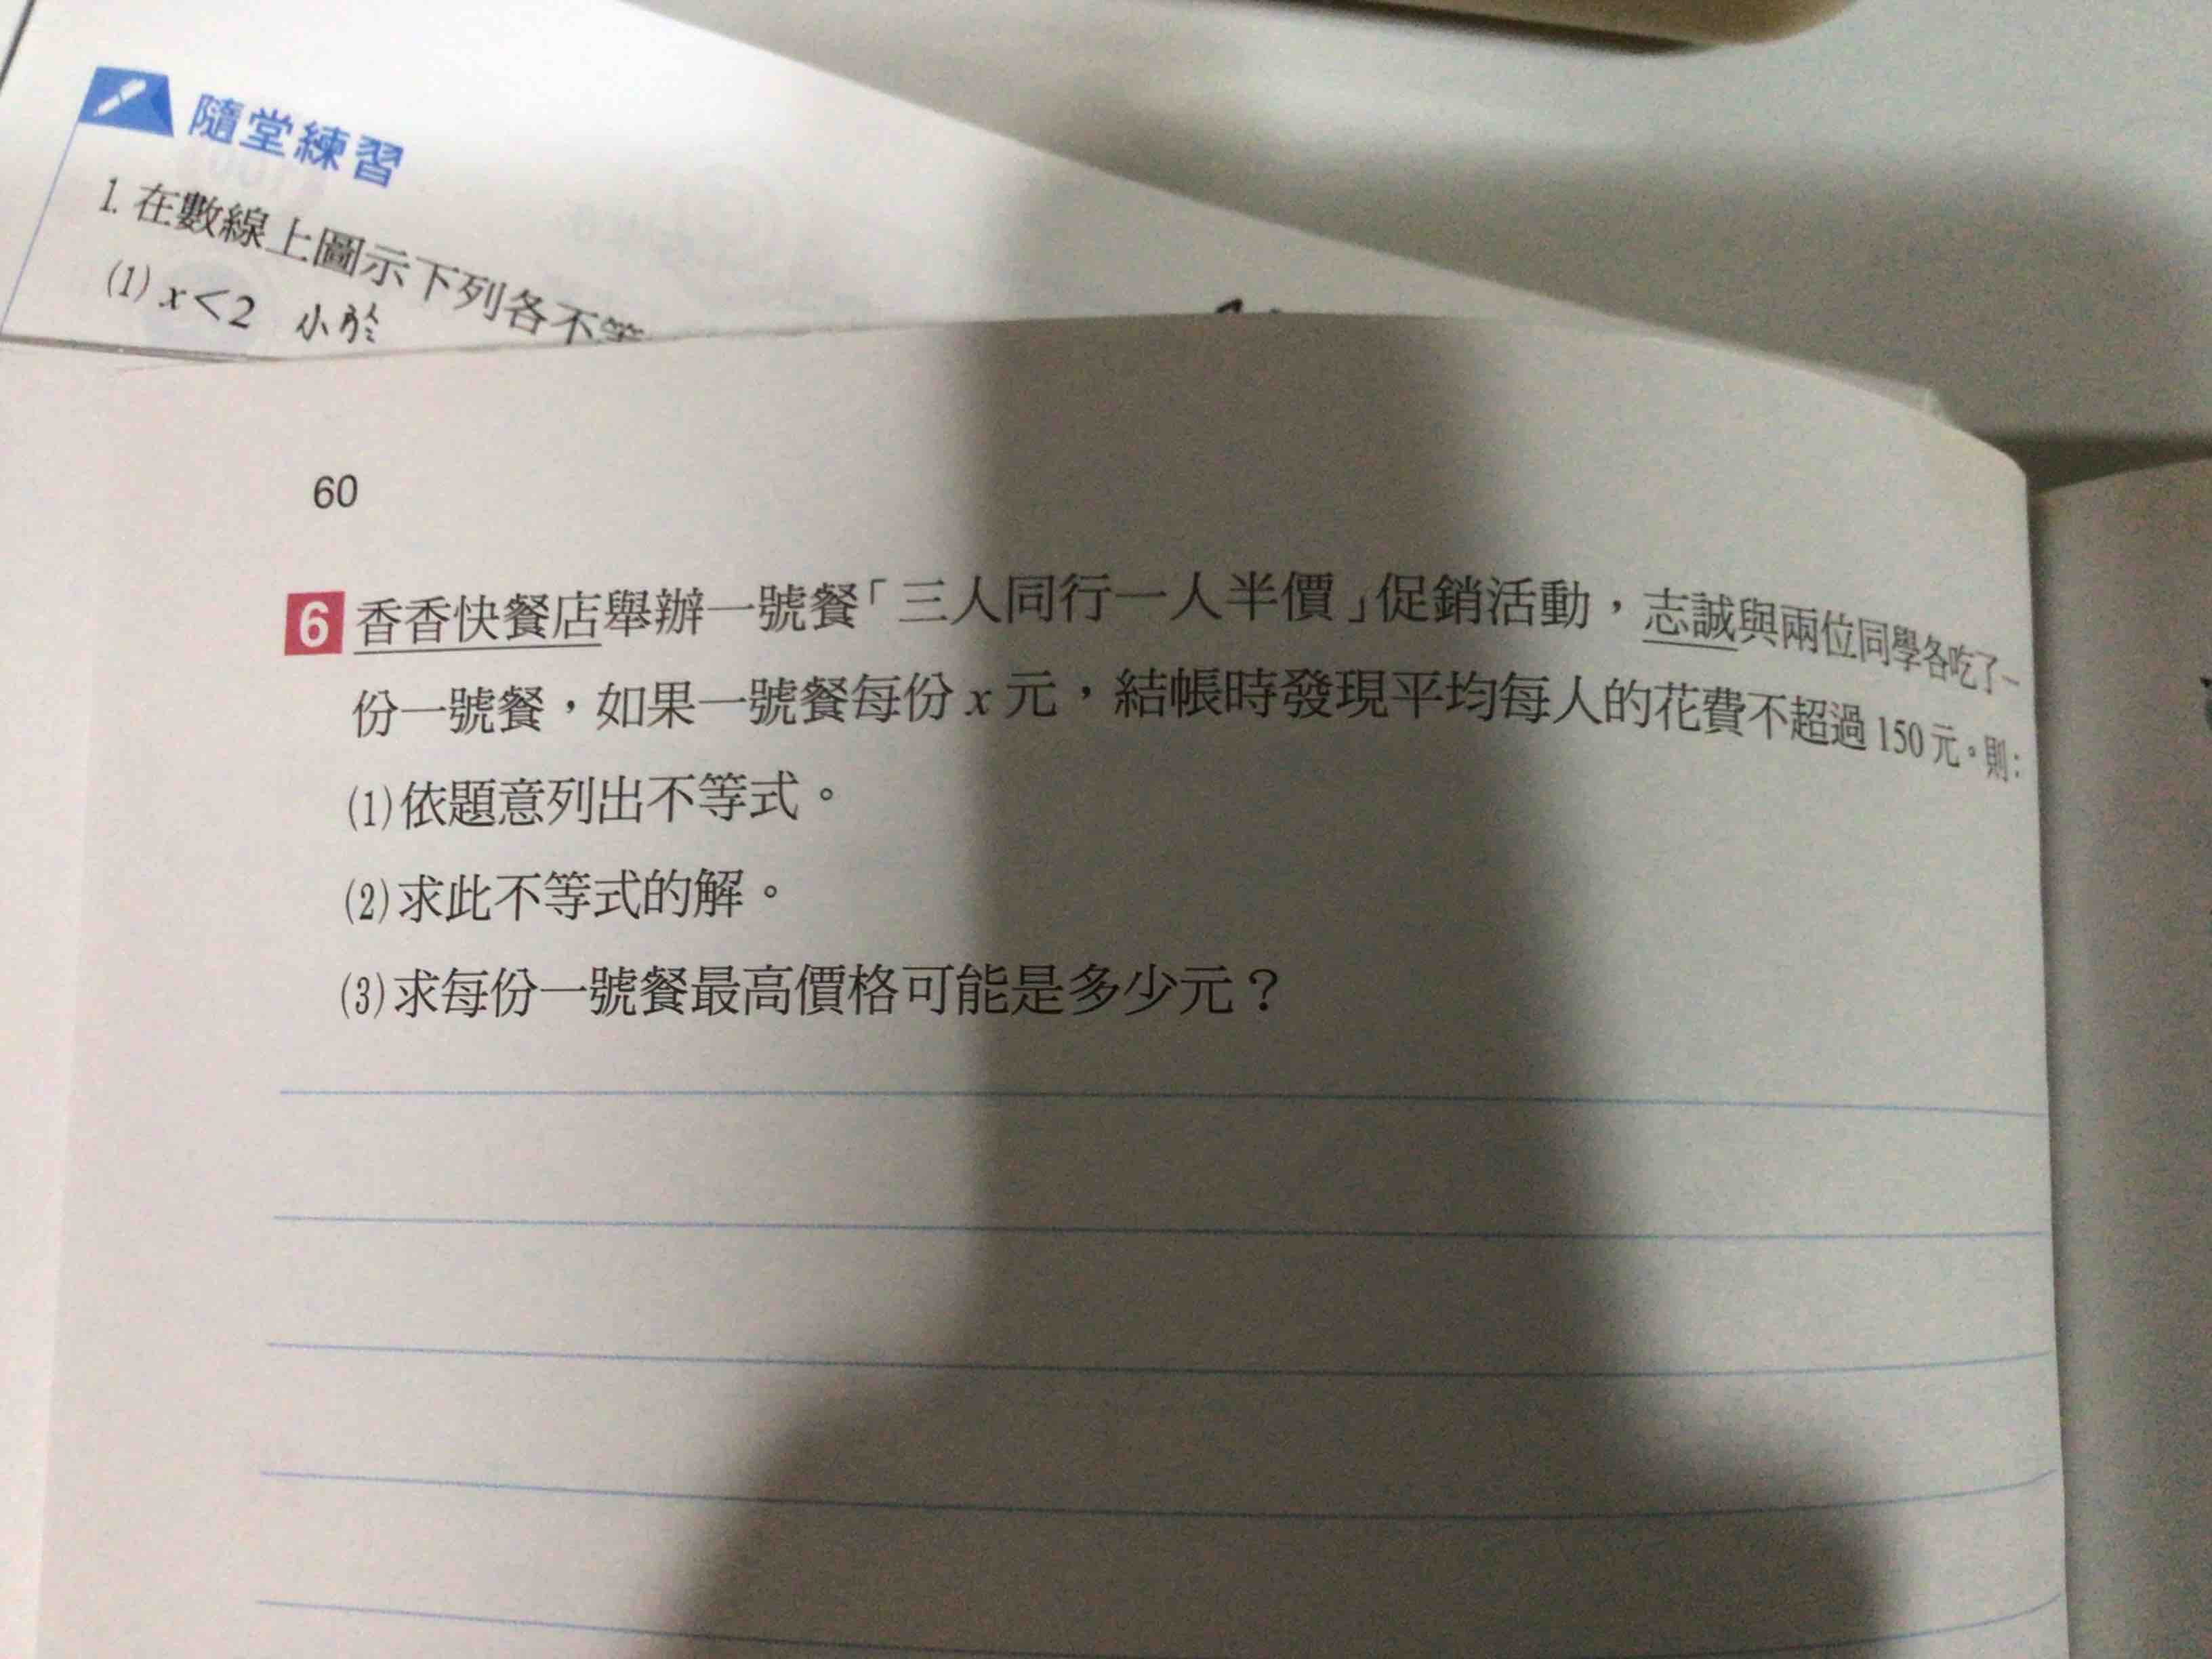 隨堂練習
1. 在數線上圖示下列各不等
(1) x<2 小於
60
6 香香快餐店舉辦一號餐「三人同行一人半價」促銷活動，志誠與兩位同學各吃了一
份一號餐，如果一號餐每份 x 元，結帳時發現平均每人的花費不超過 150 元。則：
(1)依題意列出不等式。
(2)求此不等式的解。
(3)求每份一號餐最高價格可能是多少元？